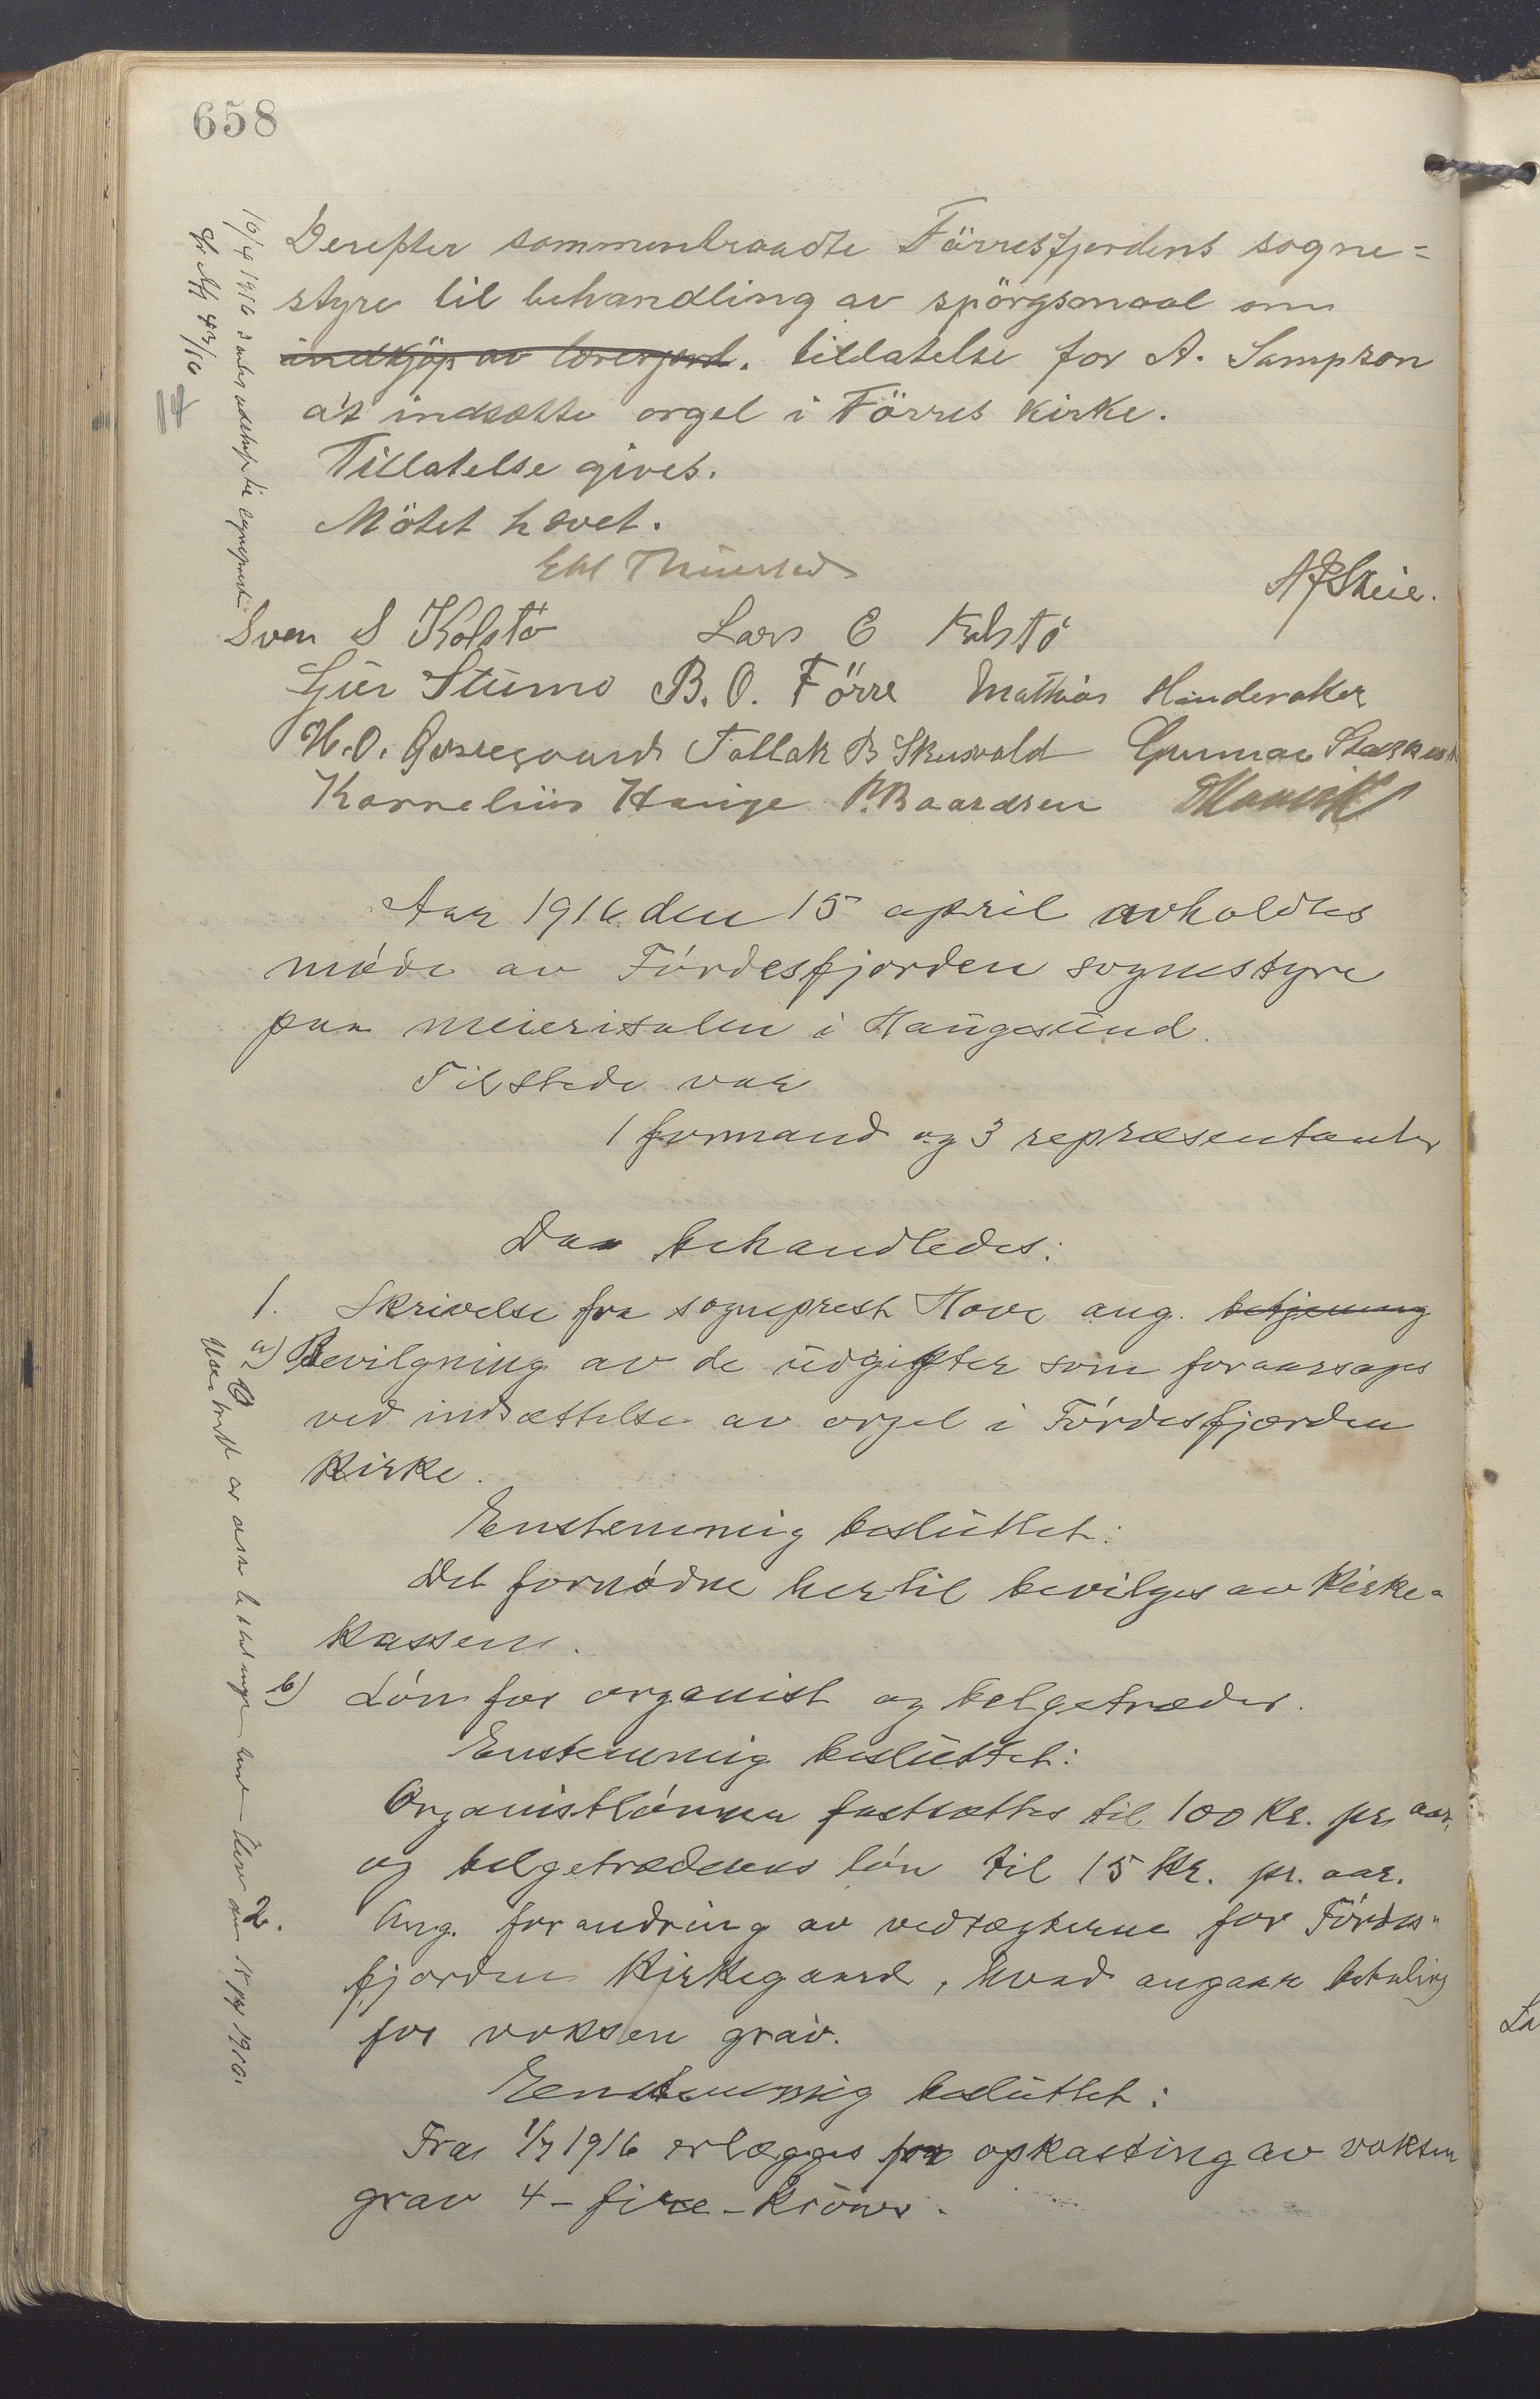 658
Derefter sammentraadte Förresfjordens sogne=
styre til behandling av spörgsmaal om
indkjöp av lærerjord. tillatelse for A. Sampson
at indsætte orgel i Förres kirke.
Tillatelse gives.
Mötet hævet.
A J Skeie.
Sven S Kolstö Lars E Kolstö
Gjier Stumo B. O. Förre Mathias Hinderaker
H. O. Tallak B Skeisvold Gunnar
Kornelius Hauge P. Baardsen
Aar 1916 den 15 april avholdtes
möde av Fördesfjorden sognestyre
paa meierisalen i Haugesund.
Tilstede var
1 formand og 3 repræsentanter
Daa behandledes:
1. Skrivelse fra sogneprest Hove ang. betjening
a) Bevilgning av de udgifter som foraarsages
ved indsættelse av orgel i Fördesfjorden
Kirke.
Enstemmig besluttet:
Det fornödne hertil bevilges av Kirke=
kassen.
b) Lön for organist og belgetræder.
Enstemmig besluttet:
Organistlönnen fastsættes til 100 Kr. pr. aar,
og belgetræderens lön til 15 Kr. pr. aar.
2. Ang. forandring av vedtægterne for Fördes=
fjorden Kirkegaard, hvad angaar betaling
for voksen grav.
Enstemmig besluttet:
Fra 1/7 1916 erlægges for opkasting av voksen
grav 4 - fire - kroner.